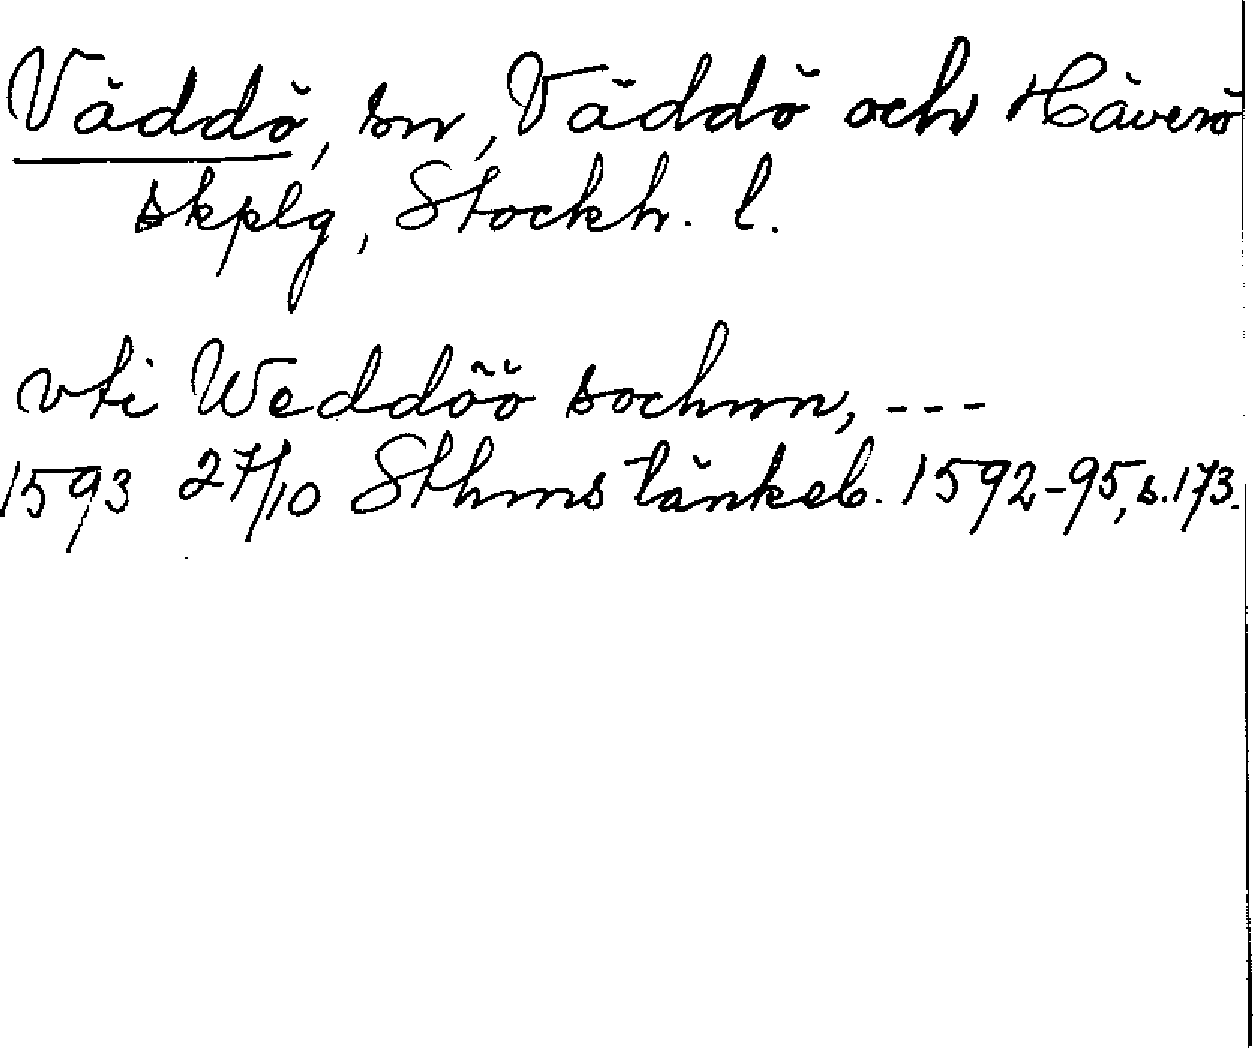 Väddö, sn, Väddö och Häverö
skplg, Stockh. l.
vti Weddöö sochnn, ---
1593 27/10 Sthms tänkeb. 1592-95, s. 173.